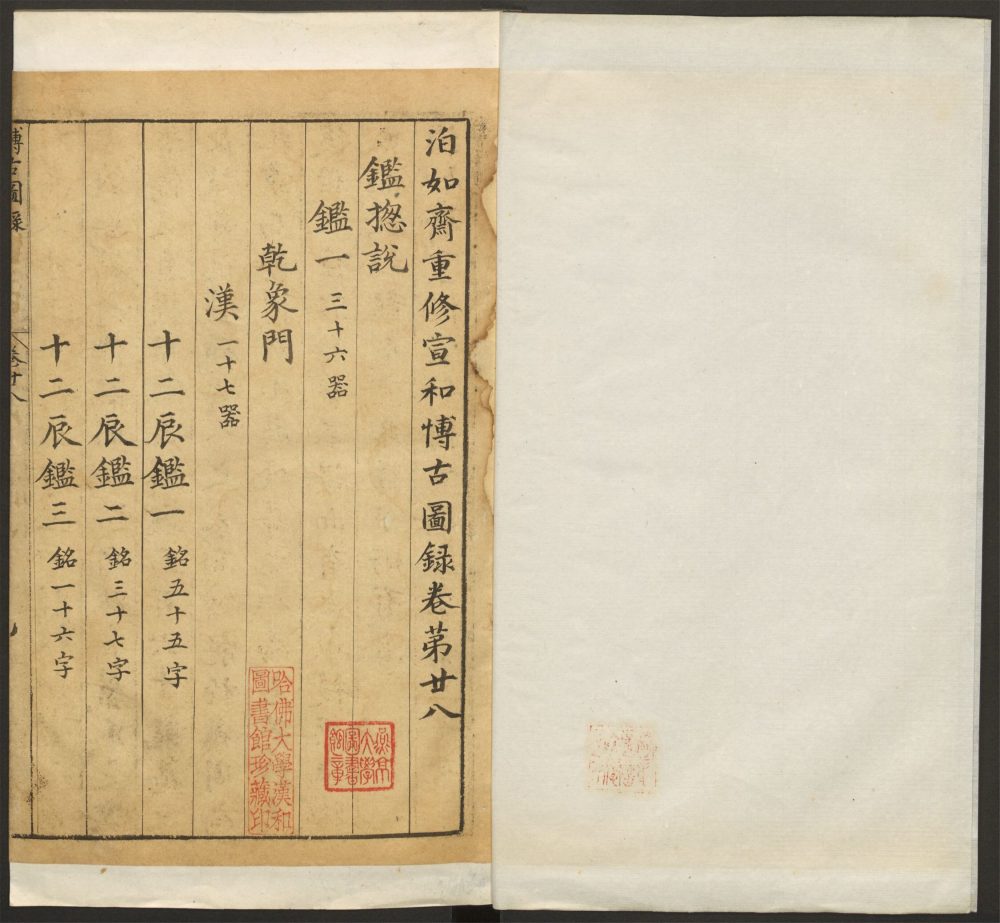 泊如齋重修宣和博古圖録卷第廿八
鑑揔說
鑑一 三十六器
乾象門
漢 一十七器
十二辰鑑一 銘五十五字
十二辰鑑二 銘三十七字
十二辰鑑三 銘一十六字
博古圖録
卷廿八
哈佛大學漢和
圖書館珍藏印